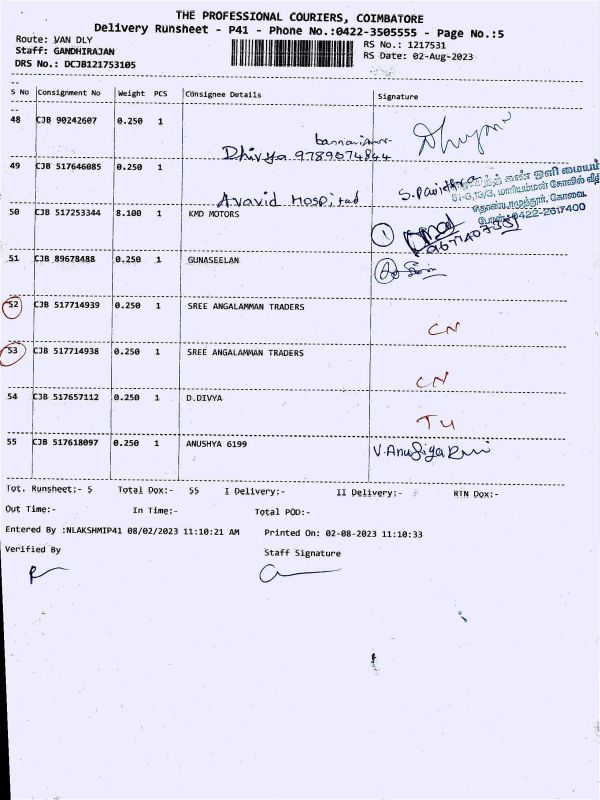 THE PROFESSIONAL COURIERS, COIMBATORE
Delivery Runsheet - P41 - Phone No.:0422-3505555 - Page No.:5
Route: VAN DLY
RS No.: 1217531
Staff: GANDHIRAJAN
RS Date: 02-Aug-2023
DRS No.: DCJB121753105
S No Consignment No Weight PCS Consignee Details Signature
48 CJB 90242607 0.250 1
Dhivya 9789074844
49 CJB 517646085 0.250 1
Aravid Hospital S.Pavithra
கண் ஒளி மையம்
மாரியம்மன் கோவில் வீதி
கோவை
0422-2617400
50 CJB 517253344 8.100 1 KMD MOTORS
51 CJB 89678488 0.250 1 GUNASEELAN
52 CJB 517714939 0.250 1 SREE ANGALAMMAN TRADERS
CN
53 CJB 517714938 0.250 1 SREE ANGALAMMAN TRADERS
CN
54 CJB 517657112 0.250 1 D.DIVYA
T4
55 CJB 517618097 0.250 1 ANUSHYA 6199
Tot. Runsheet:- 5 Total Dox:- 55 I Delivery:- II Delivery:- RTN Dox:-
Out Time:- In Time:- Total POD:-
Entered By :NLAKSHMIP41 08/02/2023 11:10:21 AM Printed On: 02-08-2023 11:10:33
Verified By Staff Signature